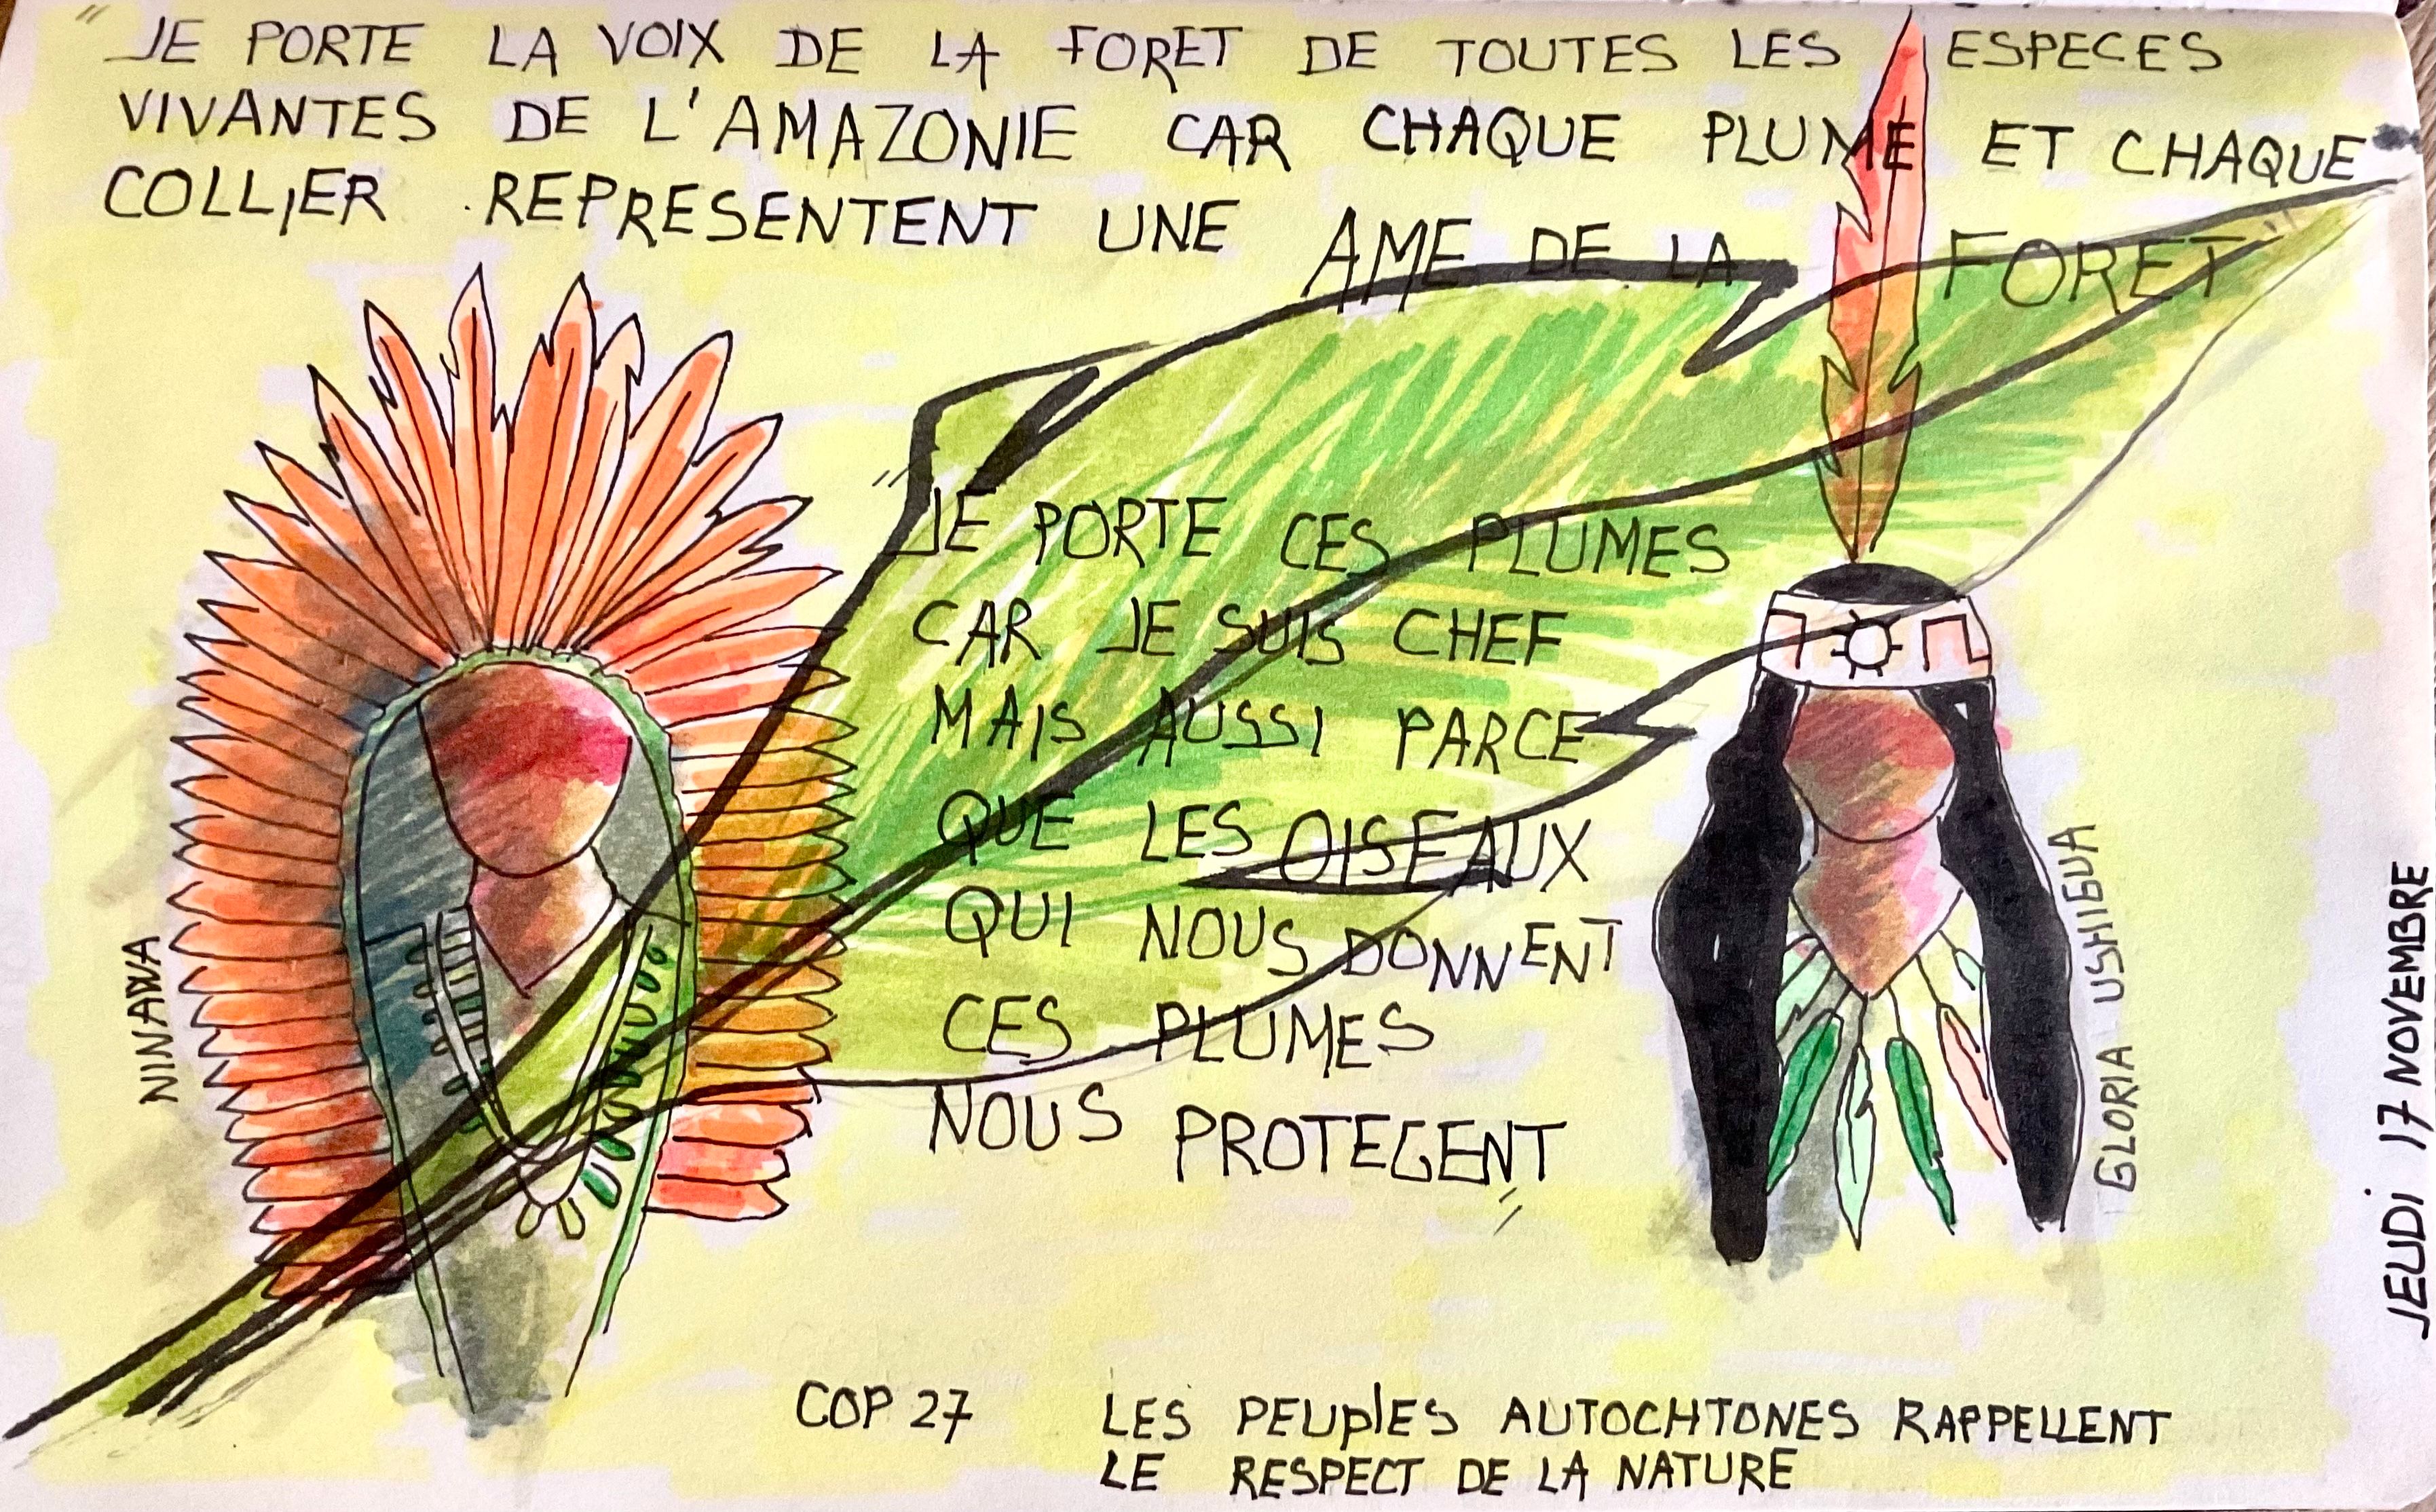 " JE PORTE LA VOIX DE LA FORET DE TOUTES LES ESPECES
VIVANTES DE L'AMAZONIE CAR CHAQUE PLUME ET CHAQUE
COLLIER REPRESENTENT UNE AME DE LA FORET"
" JE PORTE CES PLUMES
CAR JE SUIS CHEF
MAIS AUSSI PARCE
QUE LES OISEAUX
QUI NOUS DONNENT
CES PLUMES
NOUS PROTEGENT
"
NINAWA
GLORIA USHIGUA
JEUDI 17 NOVEMBRE
COP 27 LES PEUPLES AUTOCHTONES RAPPELLENT
LE RESPECT DE LA NATURE